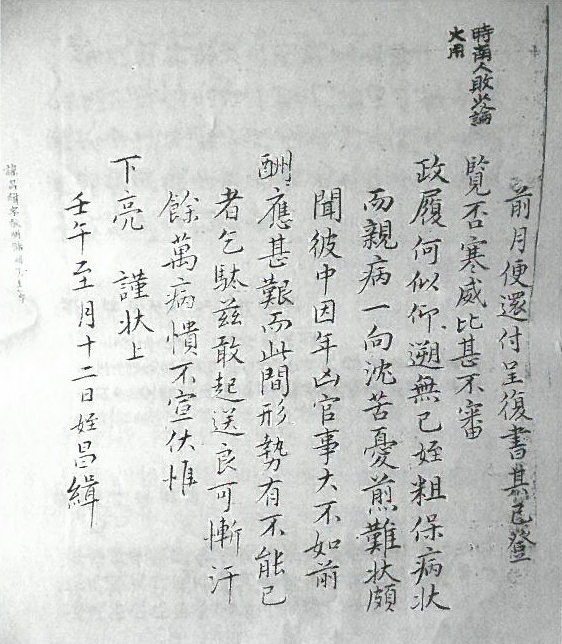 時南人敗北論
大用
前月便還付呈復書其已登
覽否寒威比甚不審
政履何似仰溯無已姪粗保病狀
而親病一向沈苦憂煎難狀頗
聞彼中因年凶官事大不如前
酬應甚艱而此間形勢有不能已
者乞馱茲敢起送良可慚汗
餘萬病憒不宣伏惟
下亮 謹狀上
壬午至月十二日姪昌緝